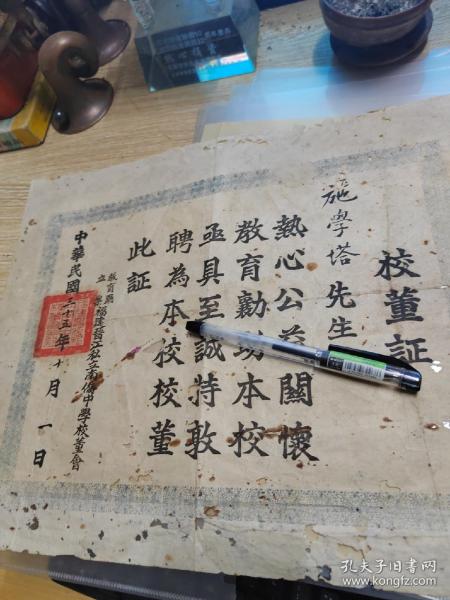 校董証
施學塔先生
熱心公益關懷
教育勷助本校
亟具至誠特敦
聘為本校校董
此証
教育廳
立案
福建晉江私立南僑中學校董會
中華民國三十五年十月一日
孔夫子旧书网
www.kongfz.com